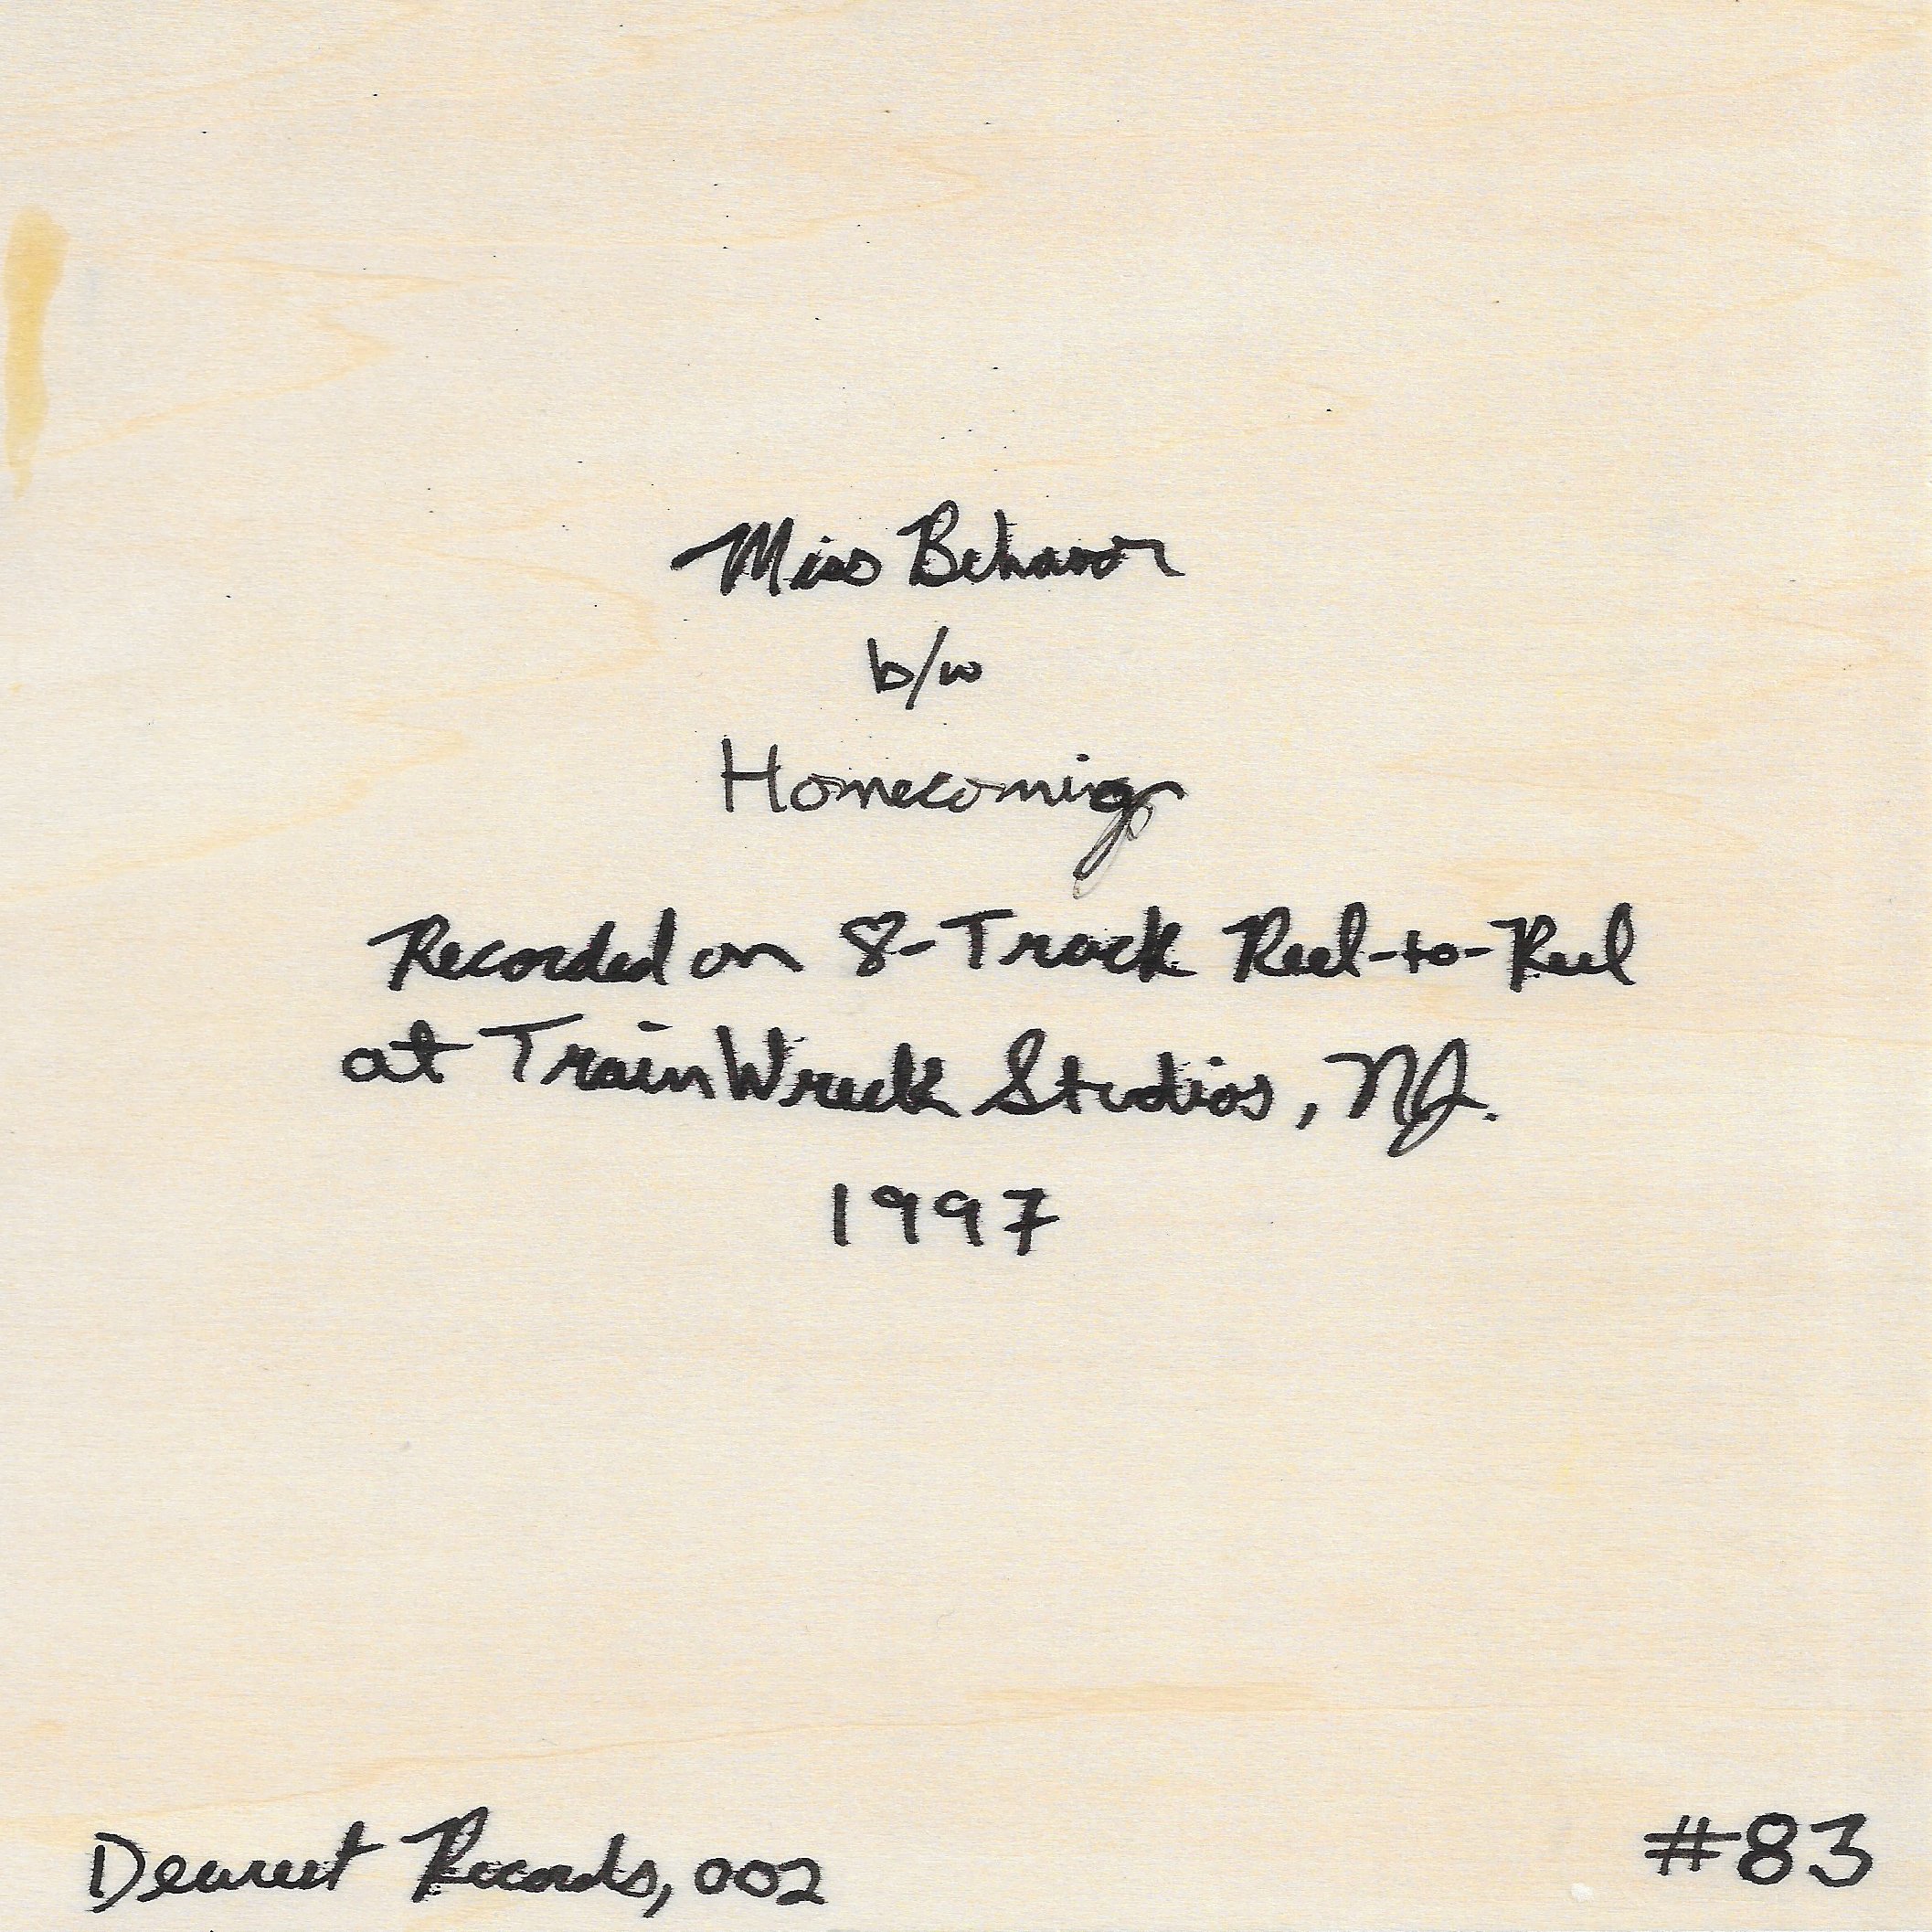 Miss Behavor
b/w
Homecoming
Recorded on 8-Track Reel-to-Reel
at TrainWreck Studios, NJ.
1997
Dearest Records, 002
#83